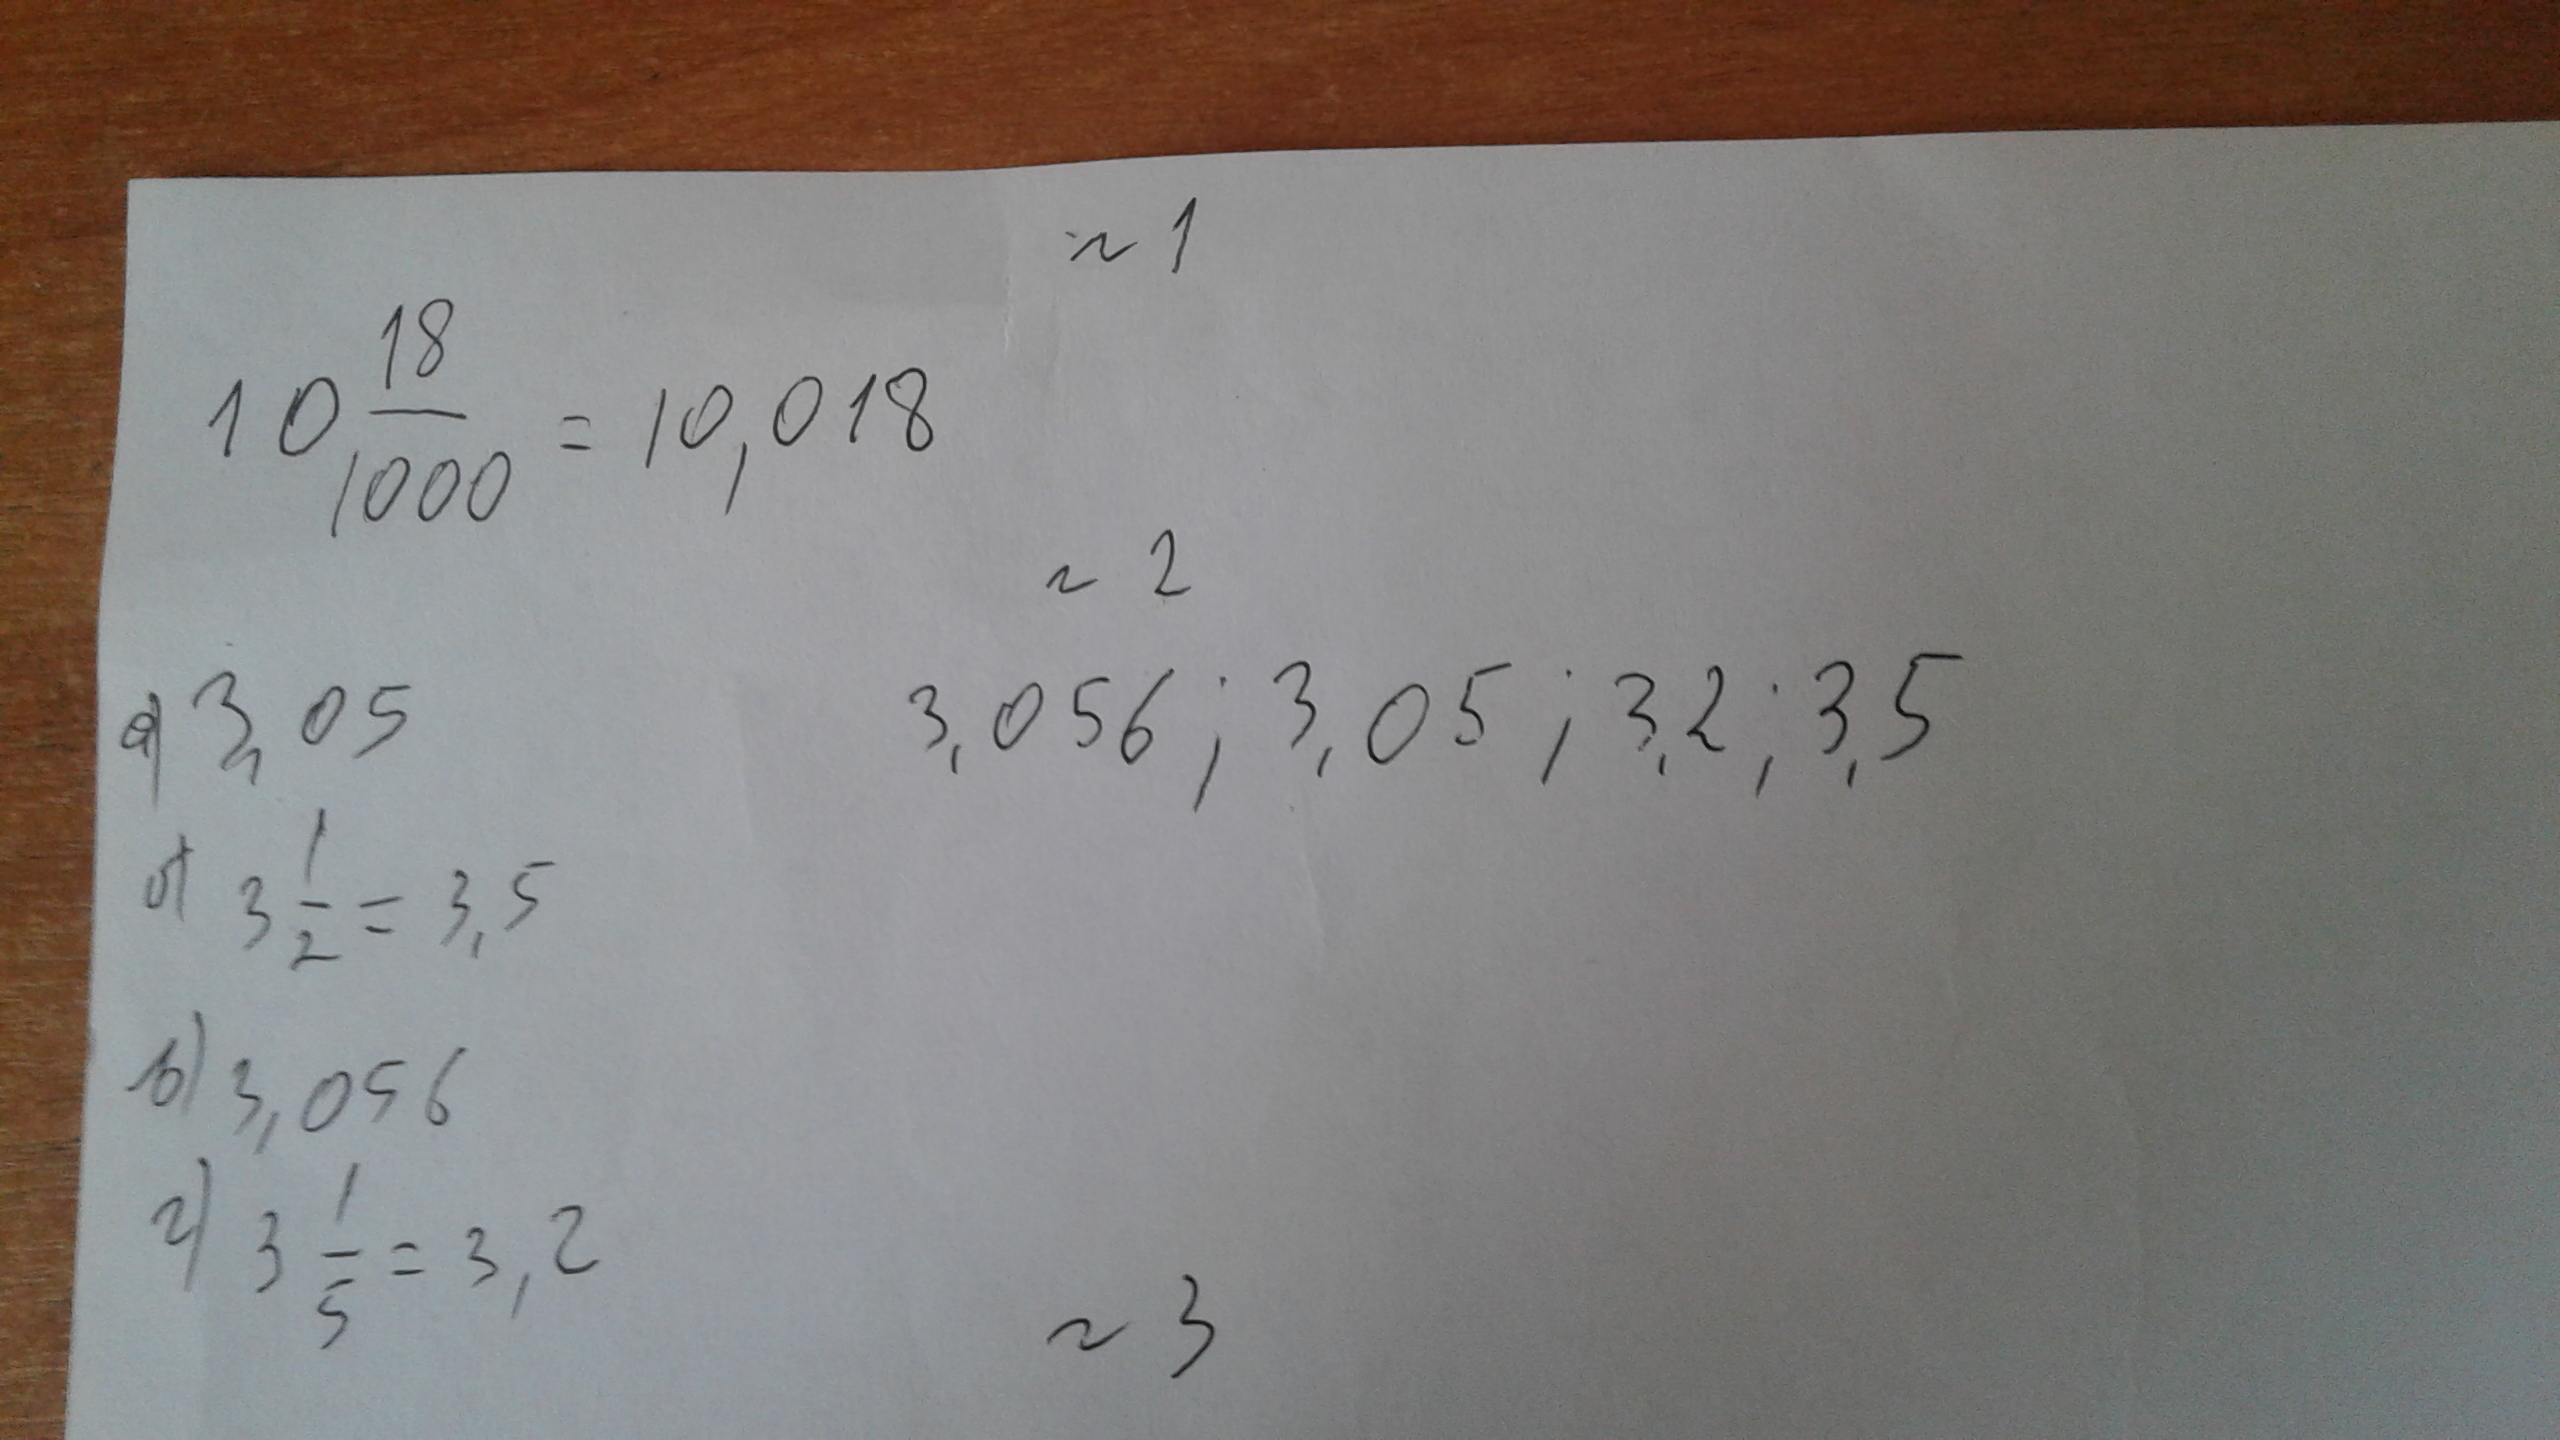 ~ 1
10 18/1000 = 10,018
~ 2
а) 3,05
3,056; 3,05; 3,2; 3,5
б) 3 1/2 = 3,5
в) 3,056
г) 3 1/5 = 3,2
~ 3